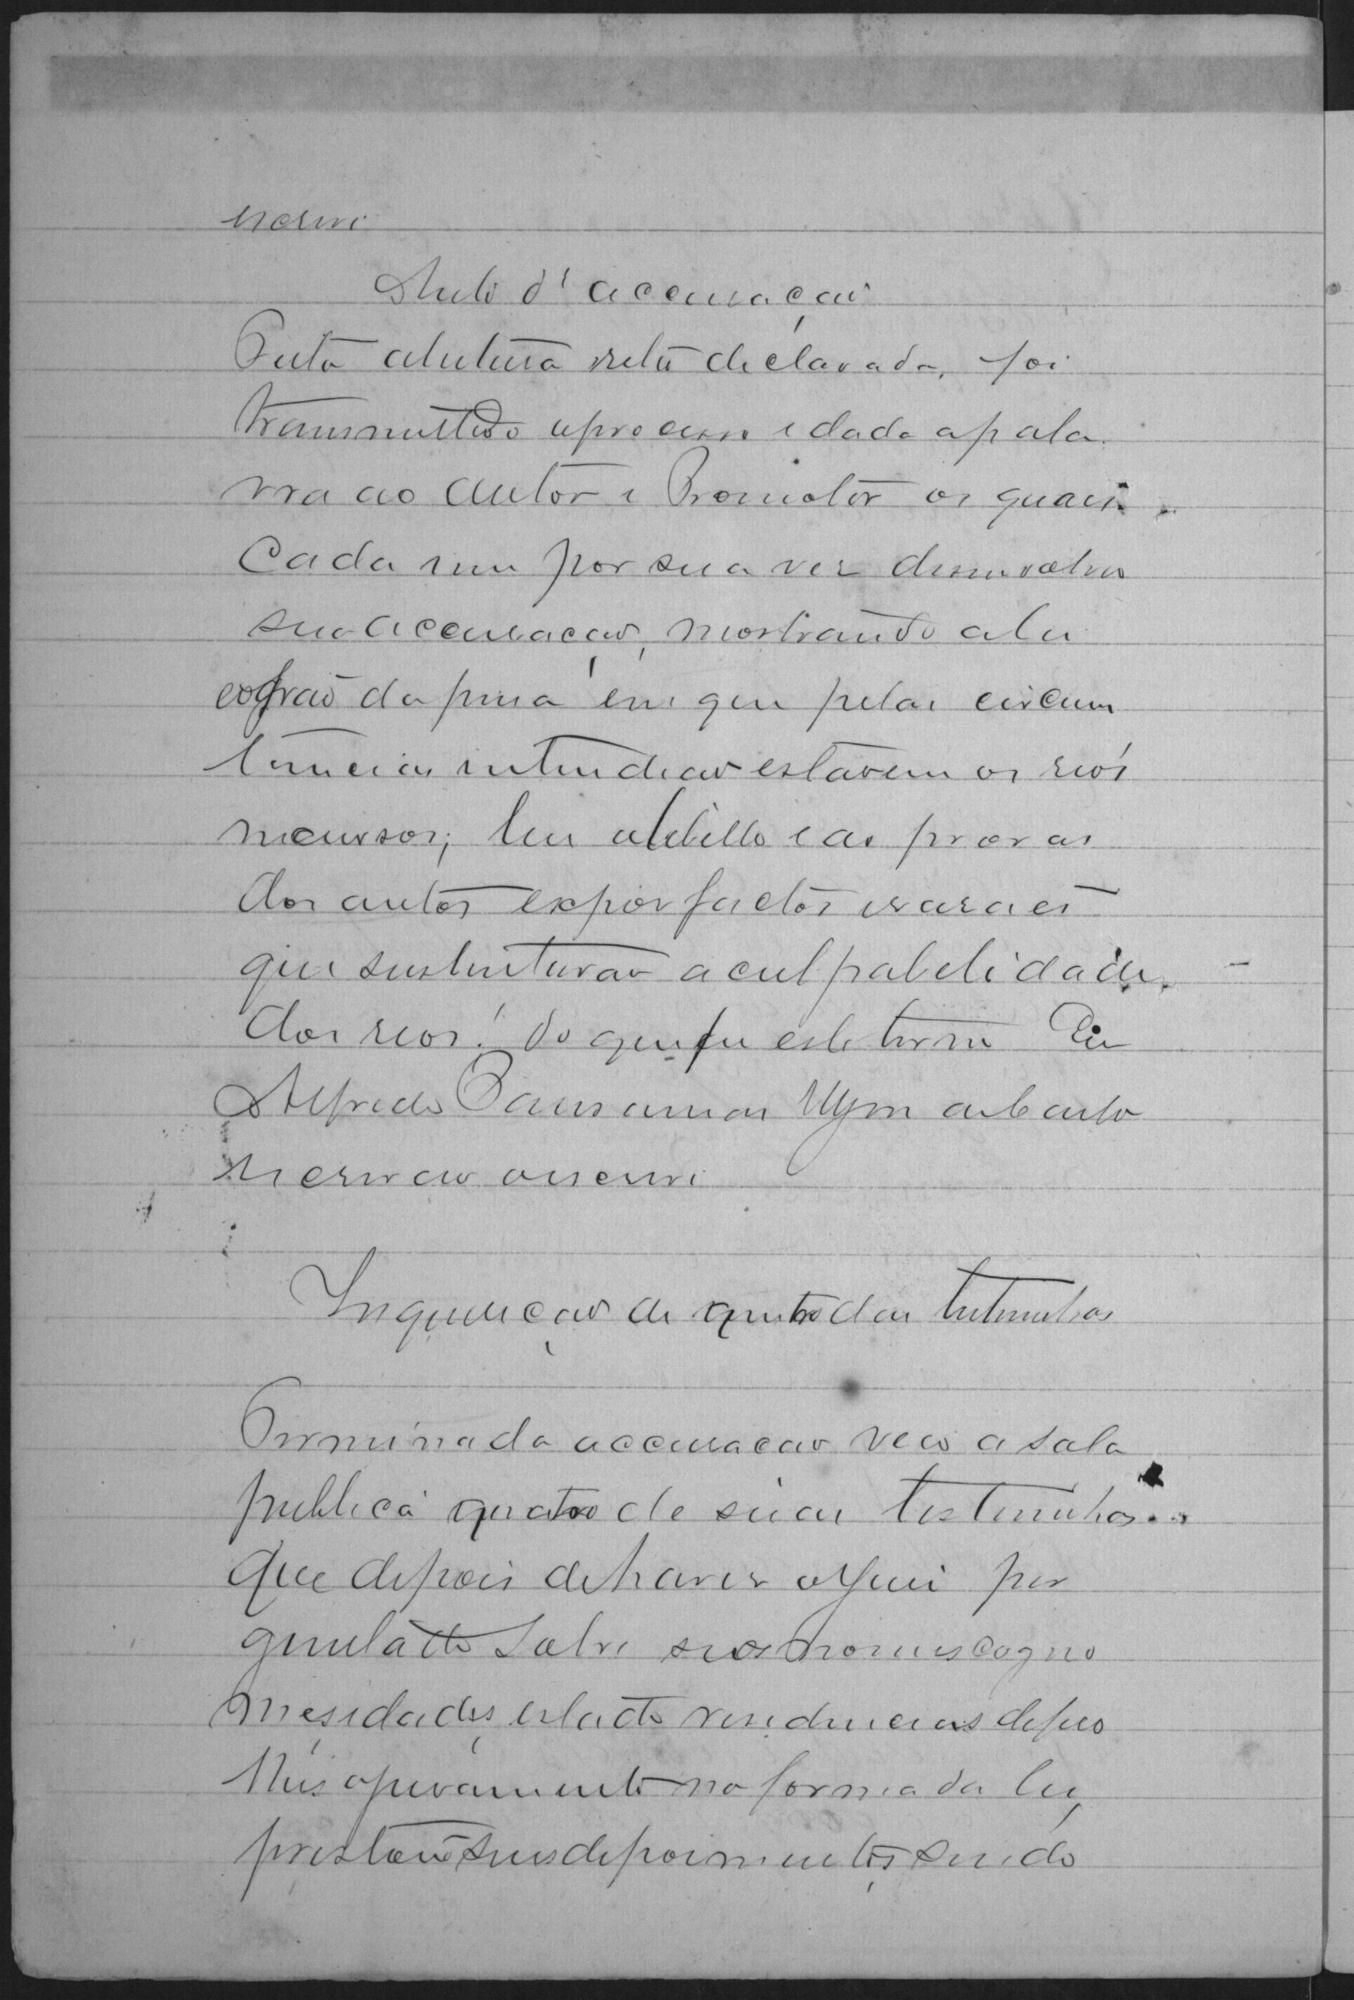 escrevi
Auto d'accusação
Feita a leitura retro declarada, foi
transmettido o processo e dada a pala
vra ao autor e Promotor os quaes
Cada um por sua vez desenvolveu
sua accusação, mostrando a lei
e o grao da pena em que pelas circum
tancias entendião estavem os reos
incursos; leu o libello e as provas
dos autos expor factos e rasoes
que sustentavão a culpabilidade
dos reos: do que fis este termo Eu
Alfredo
escrivão o escrevi
Inquirição de quatro das testemunhas
Terminada a accusação veio a sala
publica quatro de suas testemunhas
que depois de haver o Juiz per
guntado sobre seos nomes cogno
mes idades, estado residencias depro
no forma da lei,
prestarão seus depoimentos sendo